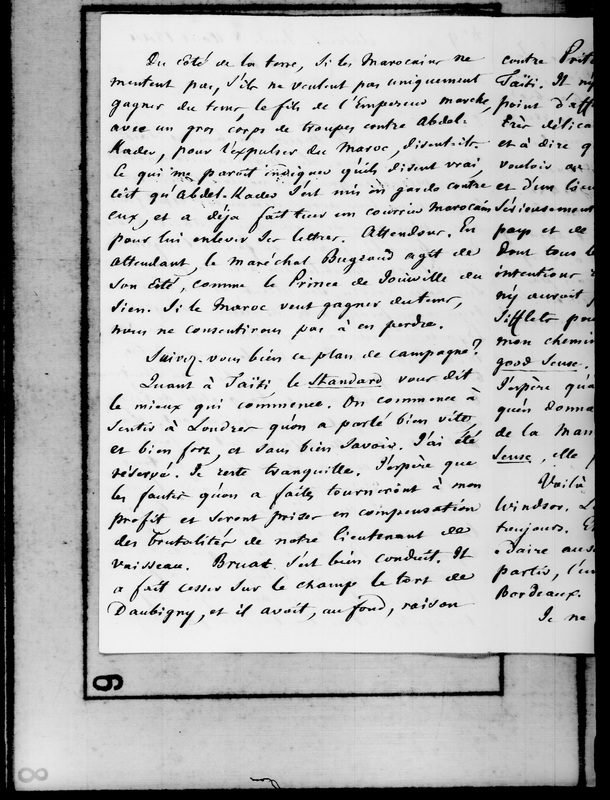 Du côté de la terre, si les Marocains ne
mentent pas, s'ils ne veulent pas uniquement
gagner du tems, le fils de l'Empereur marche,
avec un gros corps de troupes contre Abdel-
Kader, pour l'expulser du Maroc, disent-ils.
Ce qui me parait indiquer qu'ils disent vrai,
c'est qu'Abdel-Kader s'est mis en garde contre
eux, et a déja fait tuer un courrier marocain
pour lui enlever ses lettres. Attendons. En
attendant, le maréchal Bugeaud agit de
son côté, comme le Prince de Joinville du
sien. Si le Maroc veut gagner du tems,
nous ne consentirons pas à en perdre.
Suivez-vous bien ce plan de campagne?
Quant à Taïti le Standard vous dit
le mieux qui commence. On commence à
sentir à Londres qu'on a parlé bien vite,
et bien fort, et sans bien savoir. J'ai été
réservé. Je reste tranquille. J'espère que
les fautes qu'on a faites tourneront à mon
profit et seront prises en compensation
des brutalités de notre lieutenant de
vaisseau. Bruat s'est bien conduit. Il
a fait cesser sur le champ le tort de
Daubigny, et il avoit, au fond, raison
contre Prit
Taïti. Il n'y
point d'aff
très délica
et à dire q
vouloir
et d'un lieu
sérieusement
pays et de
dont tous l
intentions
n'y auroit
sifflets pou
mon chemin
good sense.
J'espère qu'a
qu'en donna
de la Man
sense, elle
Voilà
Windsor. L
toujours. E
partis, l'un
Bordeaux.
Je ne
9
8